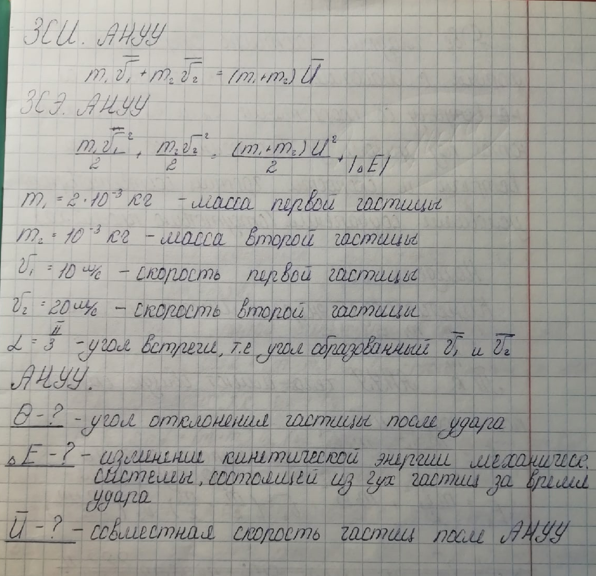 ЗСИ. АНУУ
m₁v̅₁ + m₂v̅₂ = (m₁+m₂)U̅
ЗСЭ. АНУУ
m₁v̅₁²/2 + m₂v₂²/2 = (m₁+m₂)U²/2 + |ΔE|
m₁ = 2·10⁻³ кг - масса первой частицы
m₂ = 10⁻³ кг - масса второй частицы
v̅₁ = 10 м/с - скорость первой частицы
v̅₂ = 20 м/с - скорость второй частицы
α = π/3 - угол встречи, т.е угол образованный v̅₁ и v̅₂
АНУУ.
θ - ? - угол отклонения частицы после удара
ΔE - ? - изменение кинетической энергии механичес.
системы, состоящей из 2ух частиц за время
удара
U̅ - ? - совместная скорость частиц после АНУУ